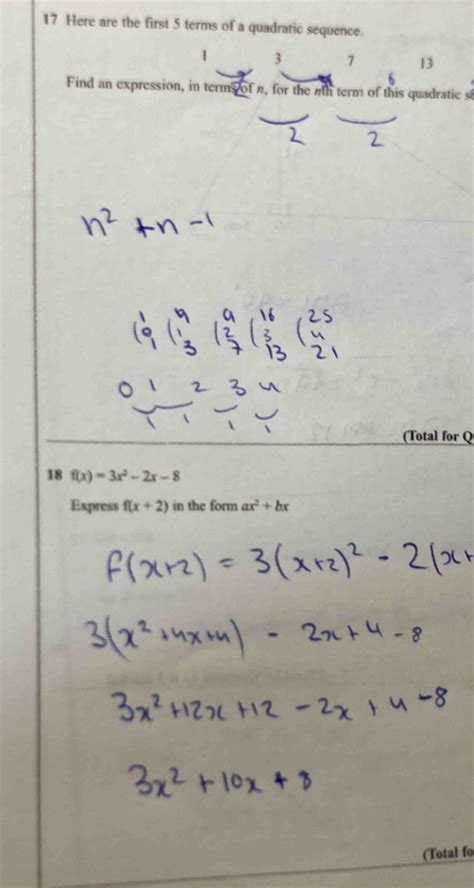 17 Here are the first 5 terms of a quadratic sequence.
1 3 7 13
2 6
Find an expression, in terms of n, for the nth term of this quadratic
2 2
n² + n - 1
1 9 9 16 25
0 1 2 3 4
1 3 7 13 21
0 1 2 3 4
1 1 1 1
(Total for Q
18 f(x) = 3x² - 2x - 8
Express f(x + 2) in the form ax² + bx
f(x+2) = 3(x+2)² - 2(x+
3(x² + 4x + 4) - 2x + 4 - 8
3x² + 12x + 12 - 2x + 4 - 8
3x² + 10x + 8
(Total fo